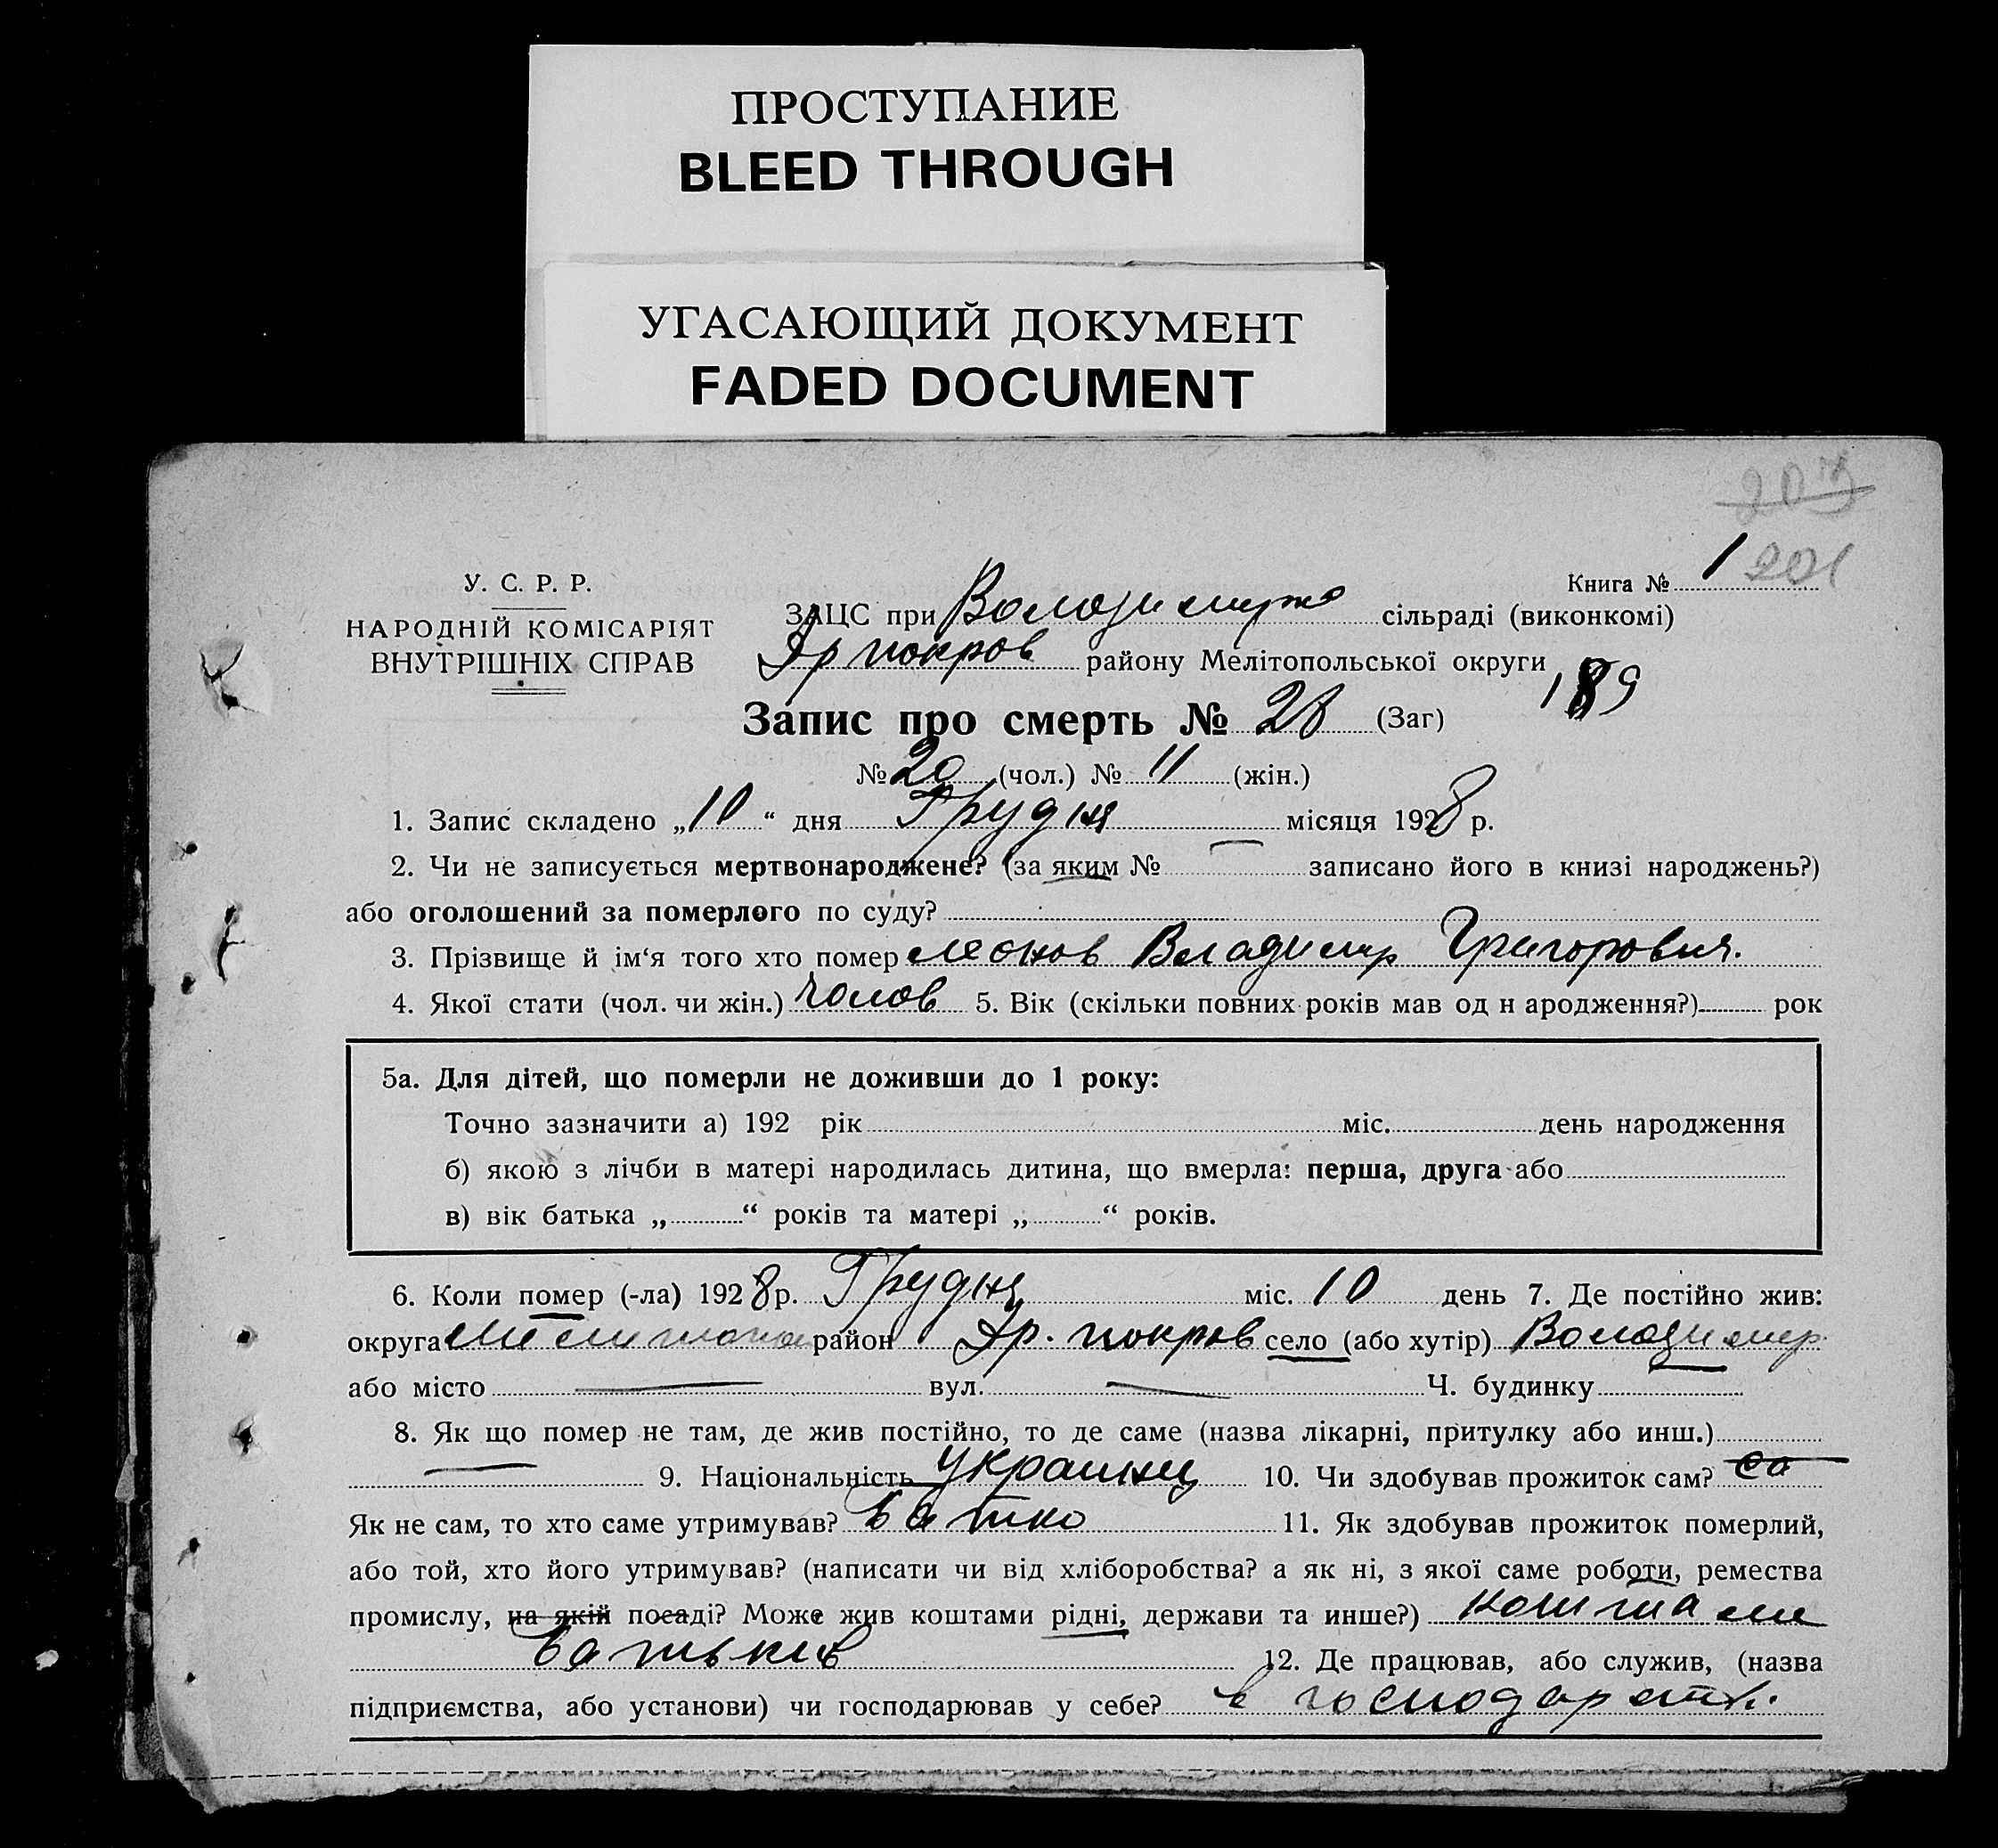 ПРОСТУПАНИЕ
BLEED THROUGH
УГАСАЮЩИЙ ДОКУМЕНТ
FADED DOCUMENT
203
Книга № 1 201
У. С. Р. Р.
НАРОДНІЙ КОМІСАРІЯТ
ВНУТРІШНІХ СПРАВ
ЗАЦС при сільраді (виконкомі)
району Мелітопольської округи
189
Запис про смерть № 28 (Заг)
№ 20 (чол.) № 11 (жін.)
1. Запис складено „10“ дня Грудня місяця 1928 р.
2. Чи не записується мертвонароджене? (за яким № записано його в книзі народжень?)
або оголошений за померлого по суду?
3. Прізвище й ім‘я того хто помер Леонов Владимир Григоровия.
4. Якої стати (чол. чи жін.) чолов 5. Вік (скільки повних років мав од н ародження?) рок
5а. Для дітей, що померли не доживши до 1 року:
Точно зазначити а) 192 рік міс. день народження
б) якою з лічби в матері народилась дитина, що вмерла: перша, друга або
в) вік батька „ “ років та матері „ “ років.
6. Коли помер (-ла) 1928 р. Грудня міс. 10 день 7. Де постійно жив:
округа район Др. покров село (або хутір) Володимир
або місто вул. Ч. будинку
8. Як що помер не там, де жив постійно, то де саме (назва лікарні, притулку або инш.)
9. Національність украинц 10. Чи здобував прожиток сам?
Як не сам, то хто саме утримував? батко 11. Як здобував прожиток померлий,
або той, хто його утримував? (написати чи від хліборобства? а як ні, з якої саме роботи, ремества
промислу, на якій посаді? Може жив коштами рідні, держави та инше?) коштами
батьків 12. Де працював, або служив, (назва
підприємства, або установи) чи господарював у себе? в господарств.